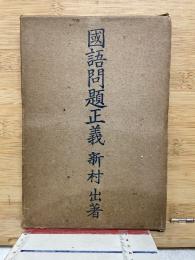 國語問題正義 新村出著